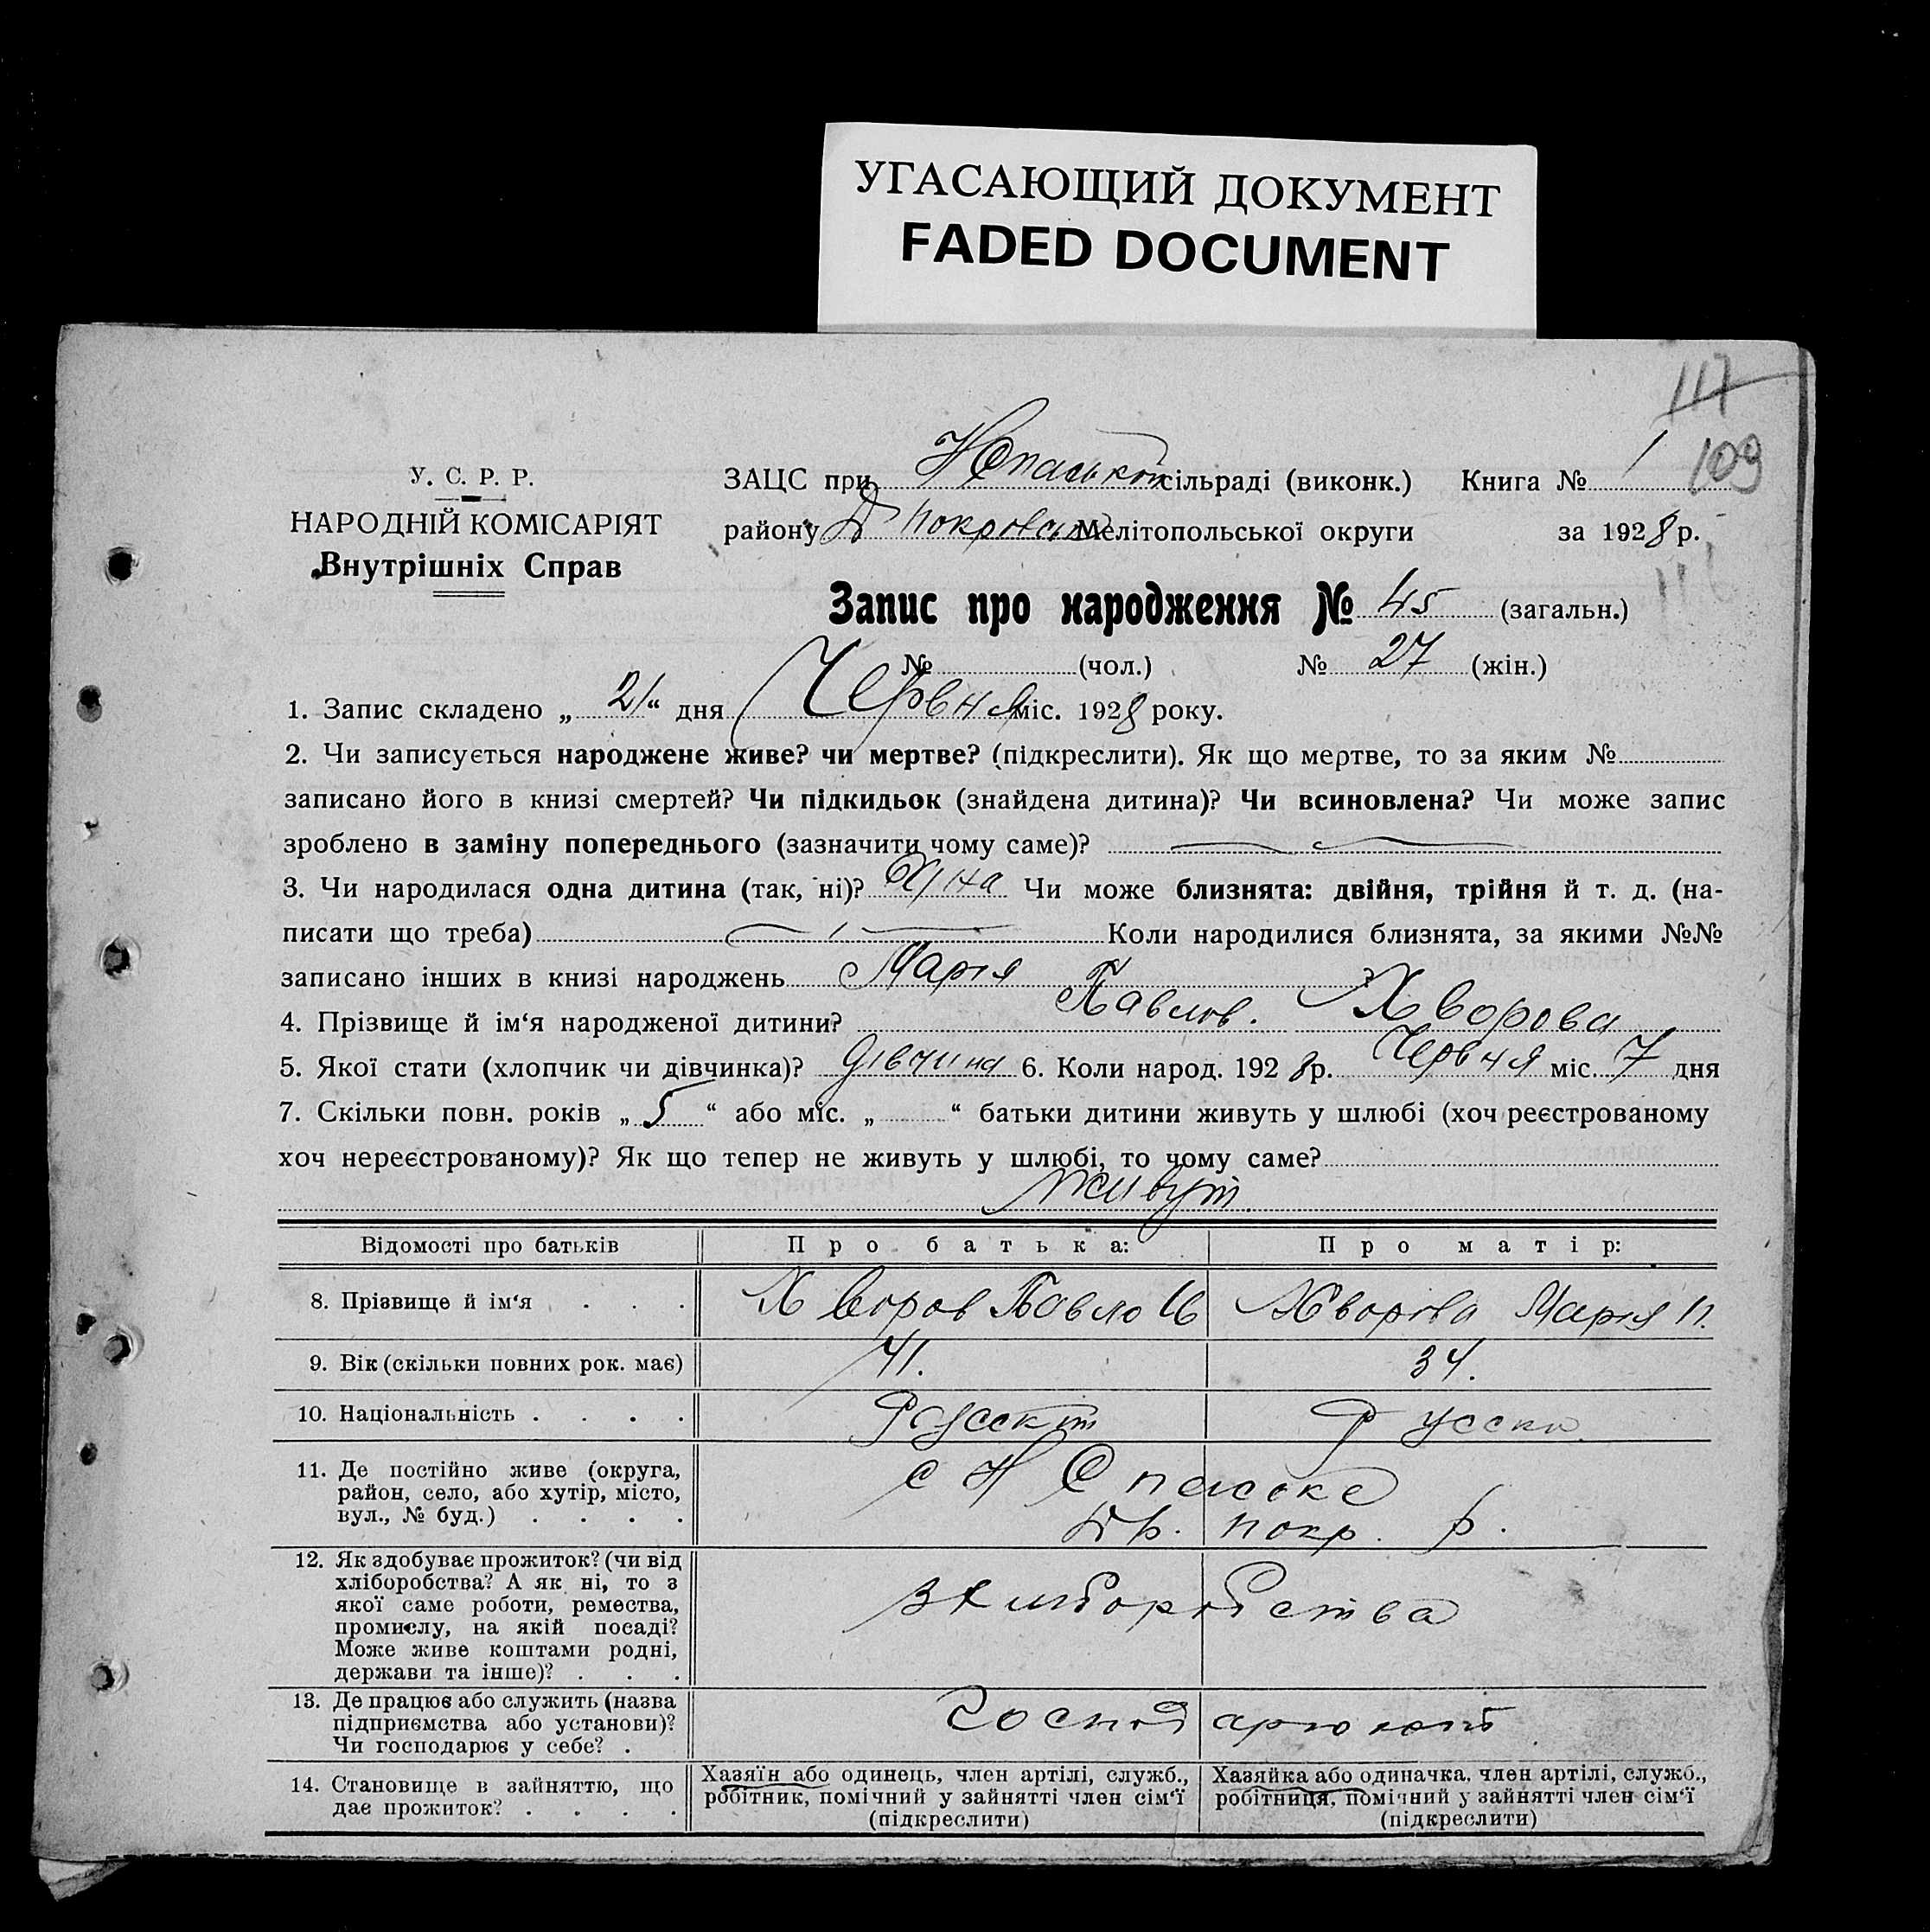 УГАСАЮЩИЙ ДОКУМЕНТ
FADED DOCUMENT
117
109
У. С. Р. Р.
НАРОДНІЙ КОМІСАРІЯТ
Внутрішніх Справ
ЗАЦС при НСпаській сільраді (виконк.) Книга № 1
району покровськ Мелітопольської округи за 1928 р.
116
Запис про народження № 45 (загальн.)
№ (чол.) № 27 (жін.)
1. Запис складено „ 21 “ дня Червня міс. 1928 року.
2. Чи записується народжене живе? чи мертве? (підкреслити). Як що мертве, то за яким №
записано його в книзі смертей? Чи підкидьок (знайдена дитина)? Чи всиновлена? Чи може запис
зроблено в заміну попереднього (зазначити чому саме)?
3. Чи народилася одна дитина (так, ні)? Одна Чи може близнята: двійня, трійня й т. д. (на-
писати що треба) Коли народилися близнята, за якими №№
записано інших в книзі народжень Марія
4. Прізвище й ім‘я народженої дитини? Павлов. Хворова
5. Якої стати (хлопчик чи дівчинка)? дівчина 6. Коли народ. 1928 р. Червня міс. 7 дня
7. Скільки повн. років „ 5 “ або міс. „ “ батьки дитини живуть у шлюбі (хоч реєстрованому
хоч нереєстрованому)? Як що тепер не живуть у шлюбі, то чому саме?
живут.
Відомості про батьків Про батька: Про матір:
8. Прізвище й ім‘я . . . Хворов Павло Ів Хворова Марія П.
9. Вік (скільки повних рок. має) 41. 34.
10. Національність . . . . Русский Русска
11. Де постійно живе (округа,
район, село, або хутір, місто,
вул., № буд.) . . . .
с Н Спаське
покр. р.
12. Як здобуває прожиток? (чи від
хліборобства? А як ні, то з
якої саме роботи, ремества,
промислу, на якій посаді?
Може живе коштами родні,
держави та інше)? . . .
з хліборобства
13. Де працює або служить (назва
підприємства або установи)?
Чи господарює у себе? .
господарюють
14. Становище в зайняттю, що
дає прожиток? . . . .
Хазяїн або одинець, член артілі, служб.,
робітник, помічний у зайнятті член сім‘ї
(підкреслити)
Хазяйка або одиначка, член артілі, служб.,
робітниця, помічний у зайнятті член сім‘ї
(підкреслити)